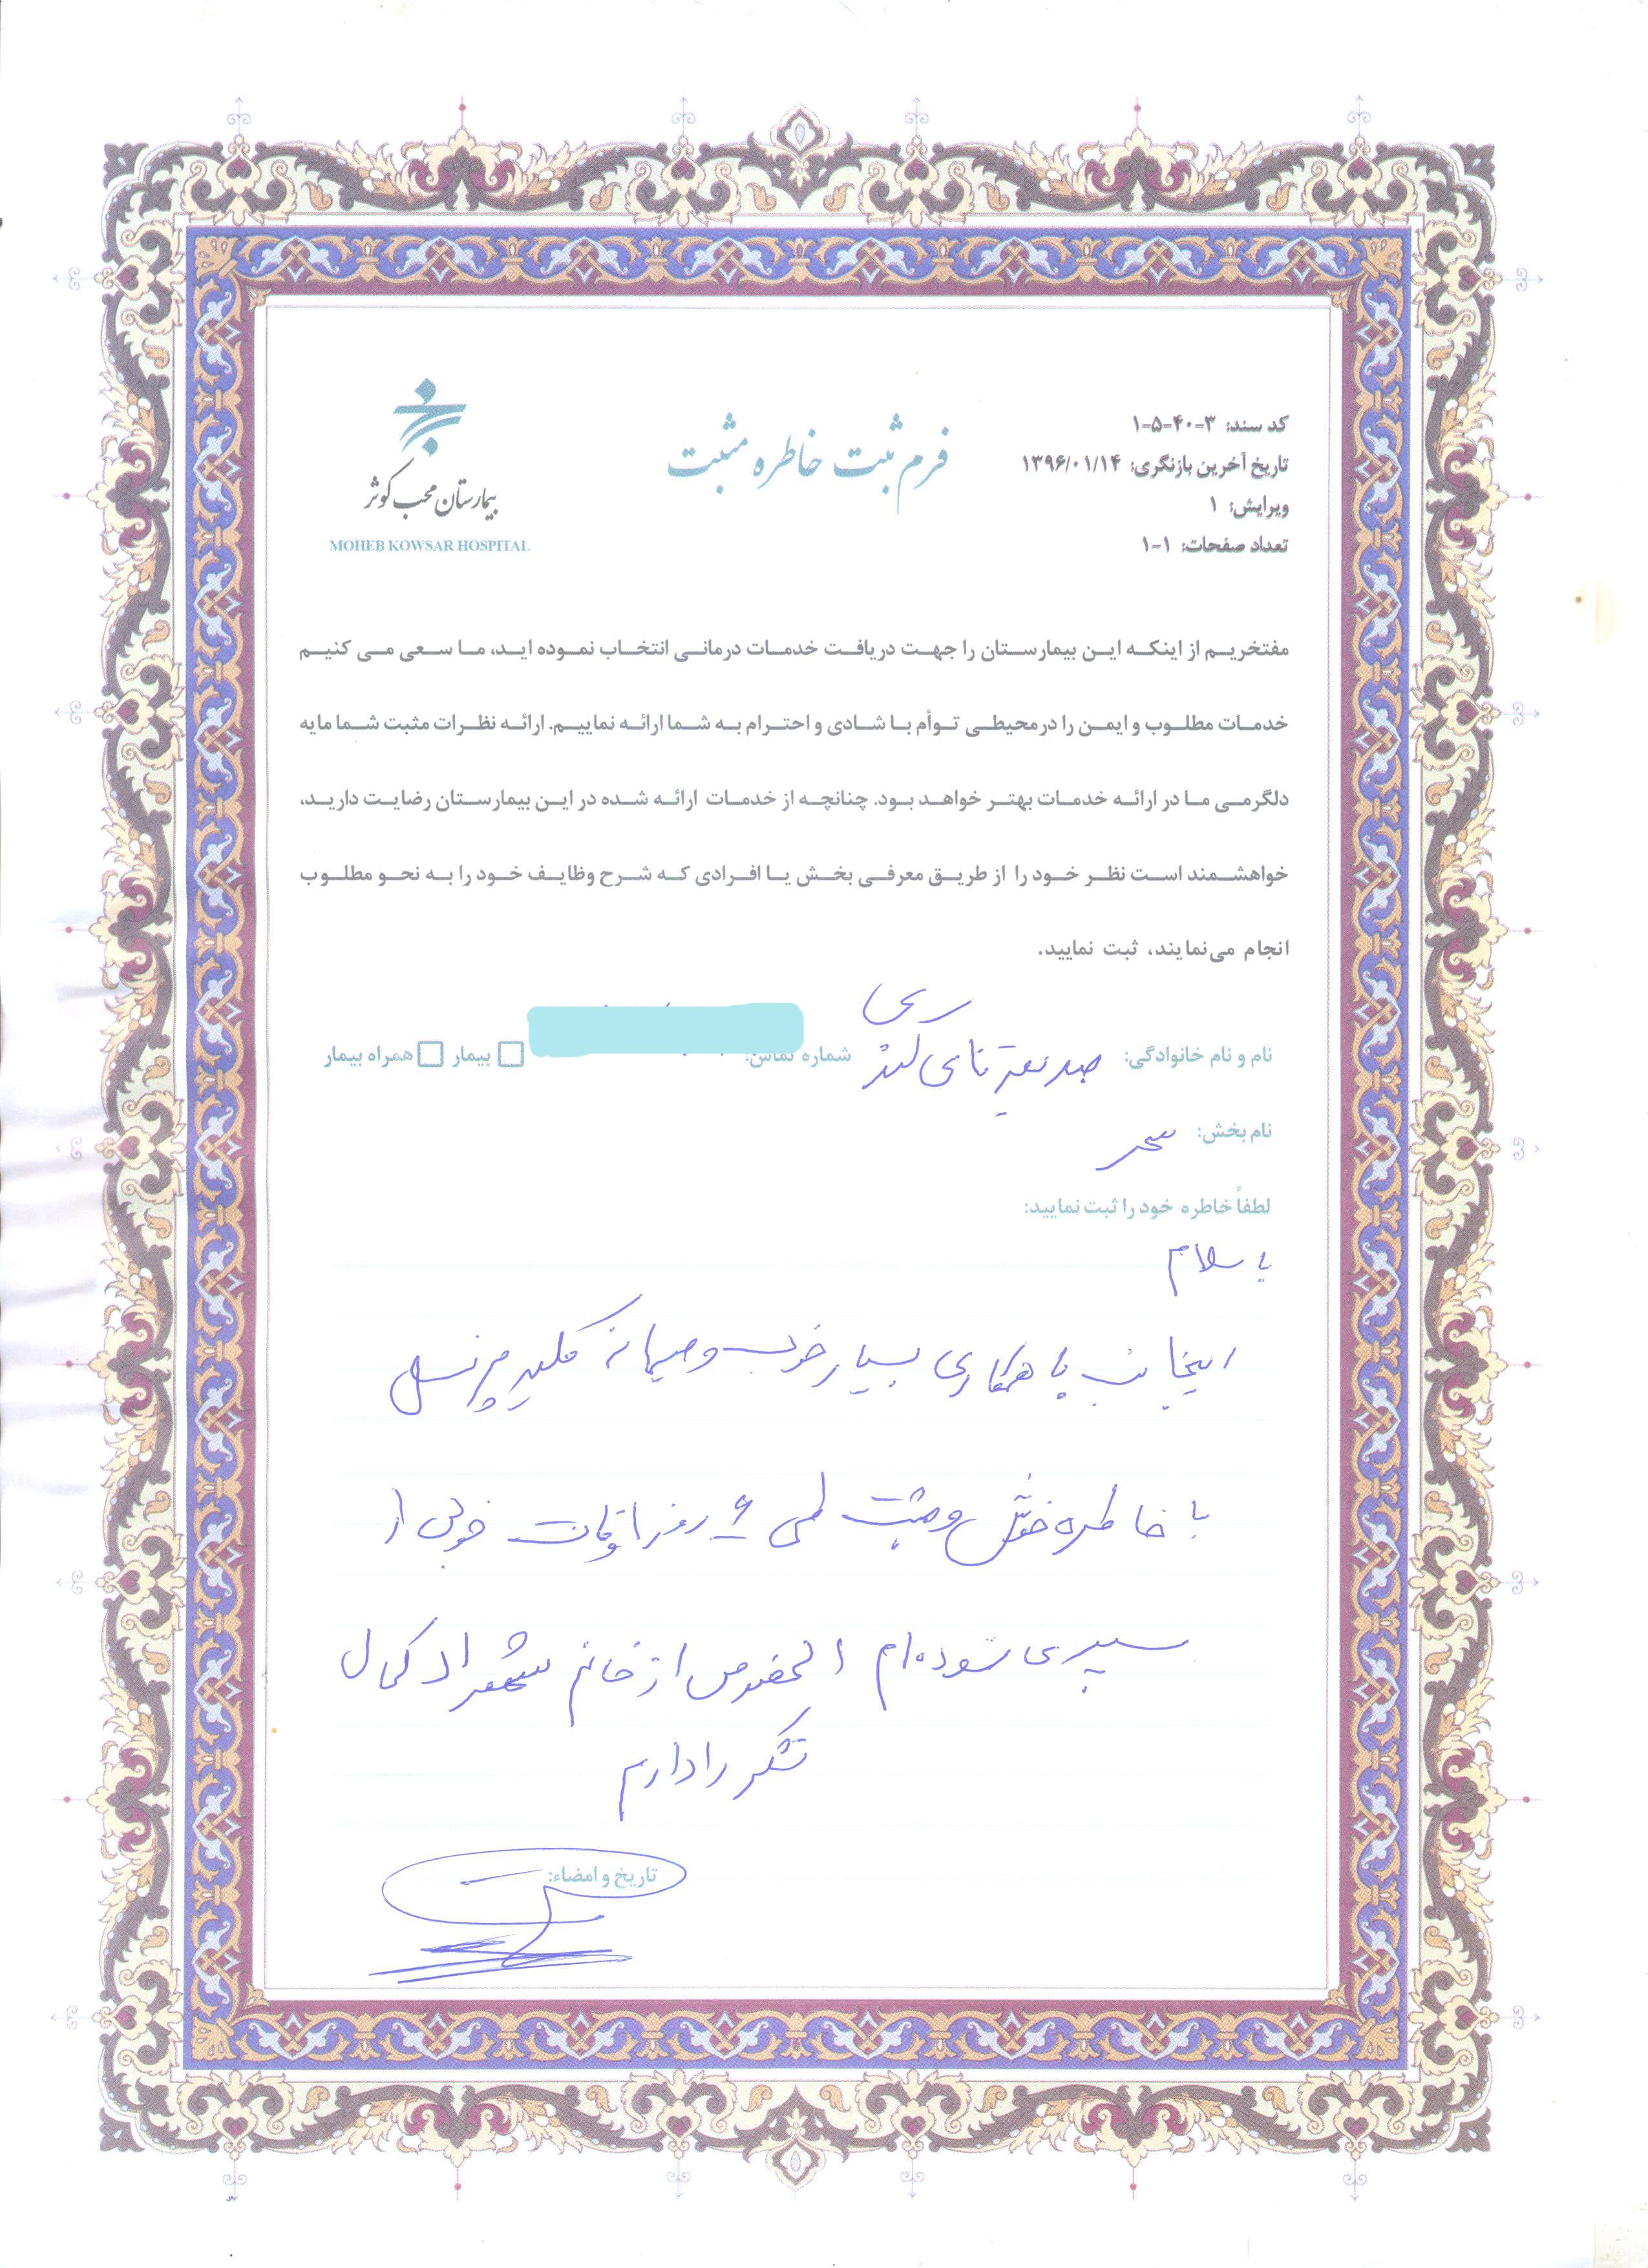 کد سند: ۳-۴۰-۵-۱
تاریخ آخرین بازنگری: ۱۳۹۶/۰۱/۱۴
ویرایش: ۱
تعداد صفحات: ۱-۱
فرم ثبت خاطره مثبت
بیمارستان محب کوثر
MOHEB KOWSAR HOSPITAL
مفتخریم از اینکه این بیمارستان را جهت دریافت خدمات درمانی انتخاب نموده اید، ما سعی می کنیم
خدمات مطلوب و ایمن را در محیطی توأم با شادی و احترام به شما ارائه نماییم. ارائه نظرات مثبت شما مایه
دلگرمی ما در ارائه خدمات بهتر خواهد بود. چنانچه از خدمات ارائه شده در این بیمارستان رضایت دارید،
خواهشمند است نظر خود را از طریق معرفی بخش یا افرادی که شرح وظایف خود را به نحو مطلوب
انجام می‌نمایند، ثبت نمایید.
نام و نام خانوادگی: شماره تماس: بیمار همراه بیمار
نام بخش: سحر
لطفاً خاطره خود را ثبت نمایید:
با سلام
اینجانب با همکاری بسیار خوب و صمیمانه کلیه پرسنل
با خاطره خوش و مثبت طی ۶ روز اوقات خوبی از
سپری نموده ام الخصوص از خانم شهرزاد کمال
تشکر را دارم
تاریخ و امضاء: